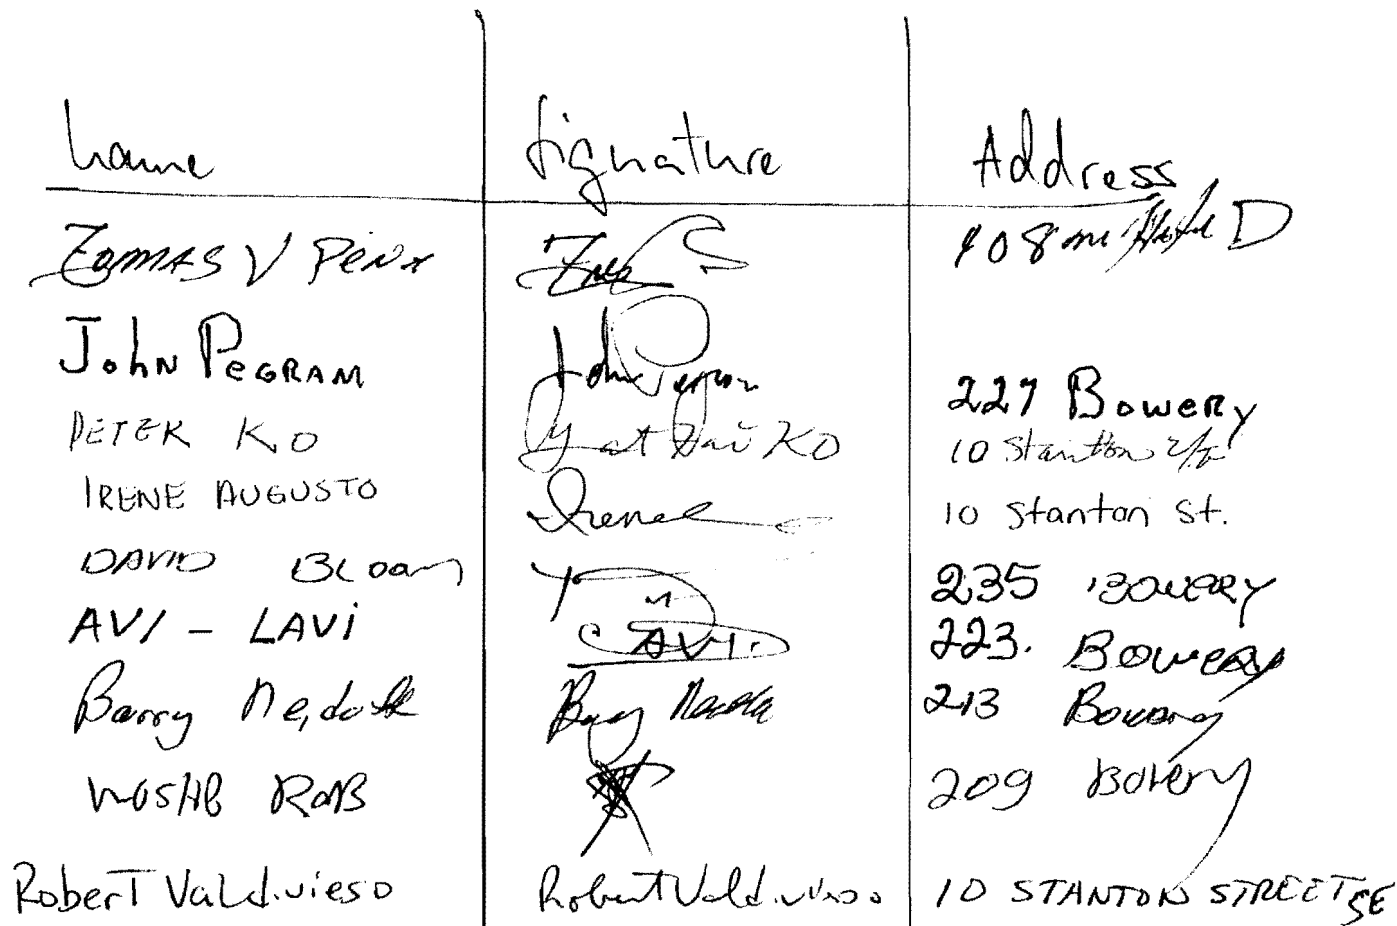 Name Signature Address
Tomas V Pena 408
John Pegram John Pegram 227 Bowery
PETER KO Yat Hai KO 10 Stanton
IRENE AUGUSTO Irene 10 Stanton St.
DAVID BLOOM 235 BOWERY
AVI - LAVI AVI. 223. Bowery
Barry 213 Bowery
209 Bowery
Robert Valdivieso Robert Valdivieso 10 STANTON STREET 5E